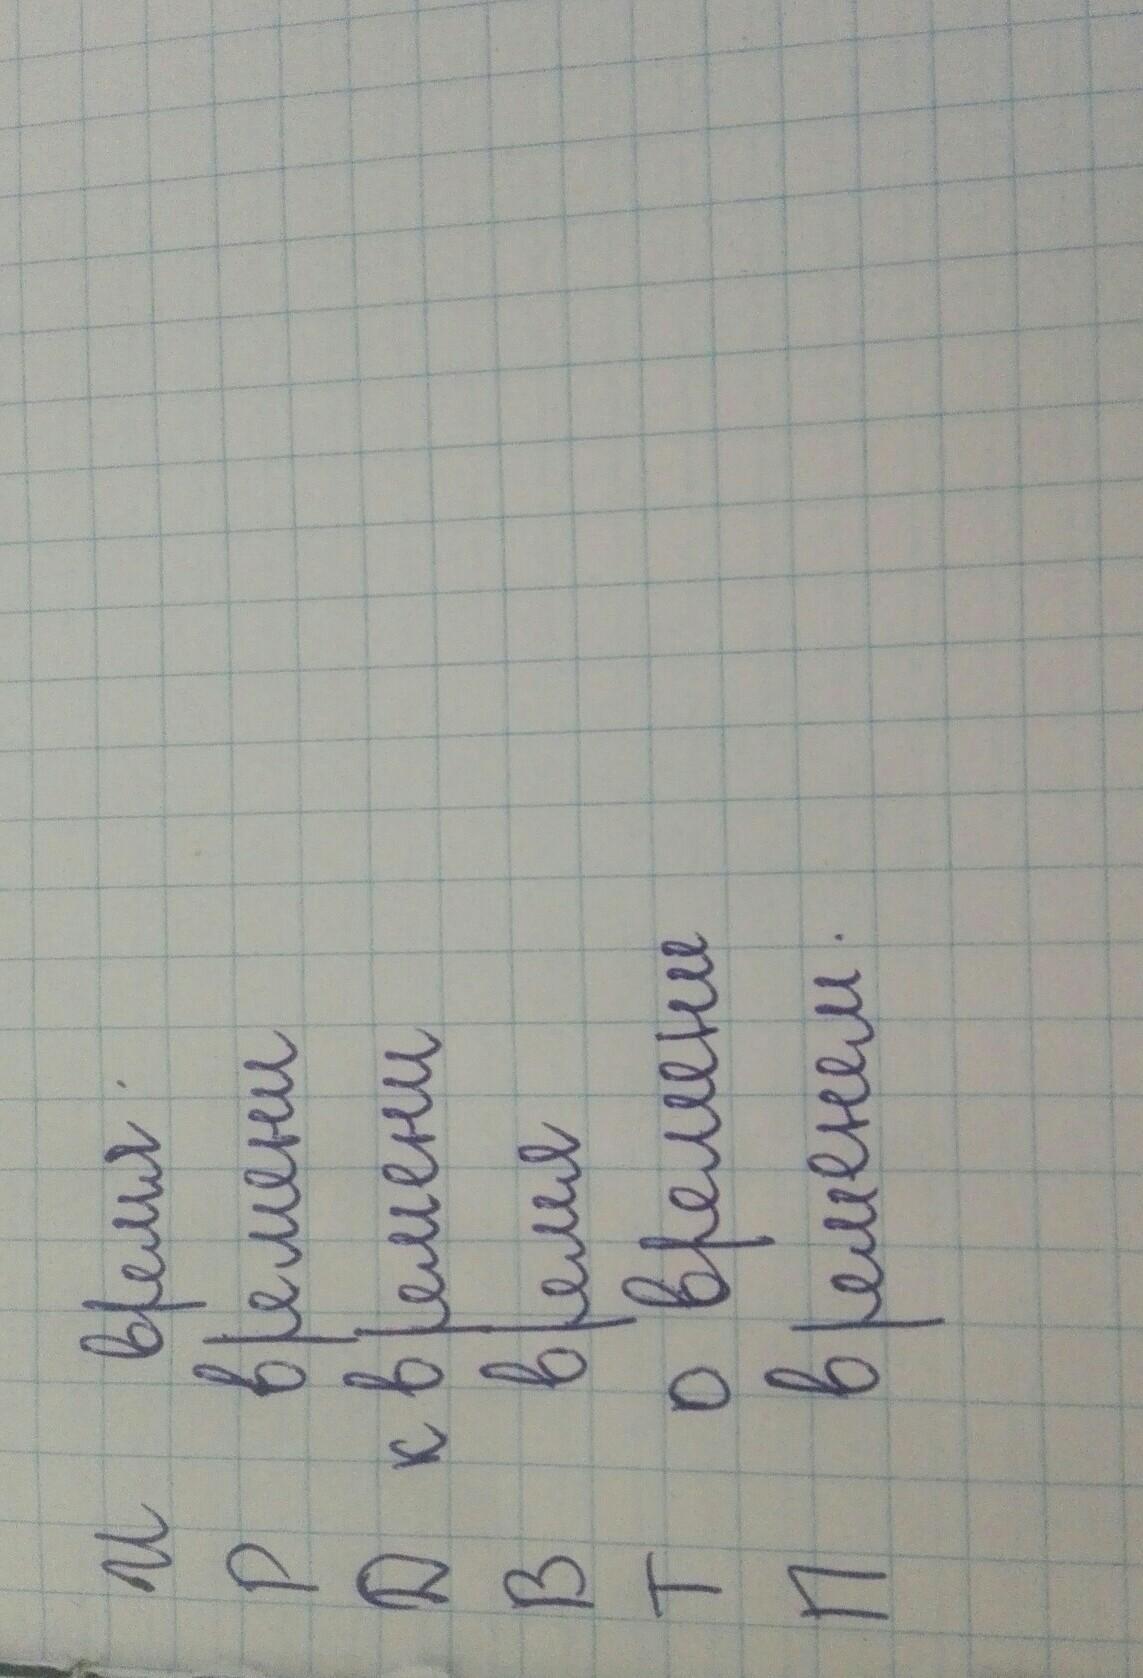 И время.
Р времени
Д к времени
В время
Т о времени
П временем.